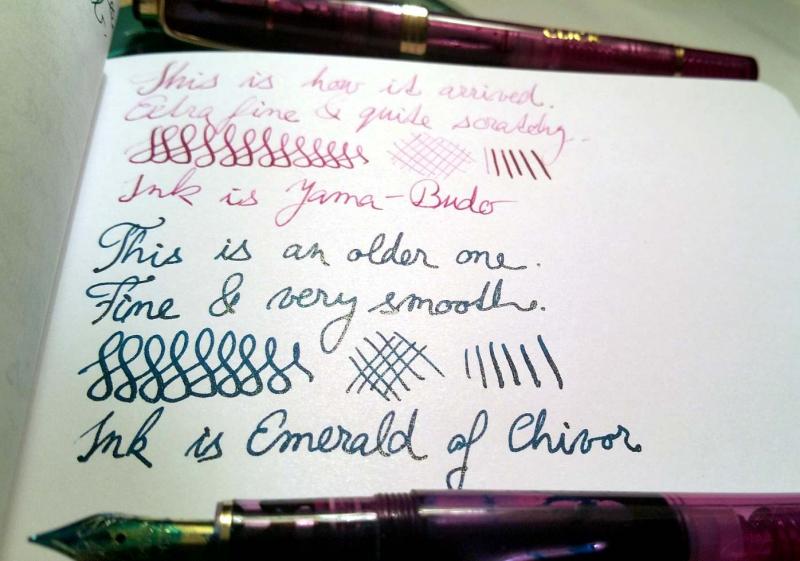 CLICK
This is how it arrived.
Extra fine & quite scratchy.
Ink is Yama-Budo
This is an older one.
Fine & very smooth.
Ink is Emerald of Chivor